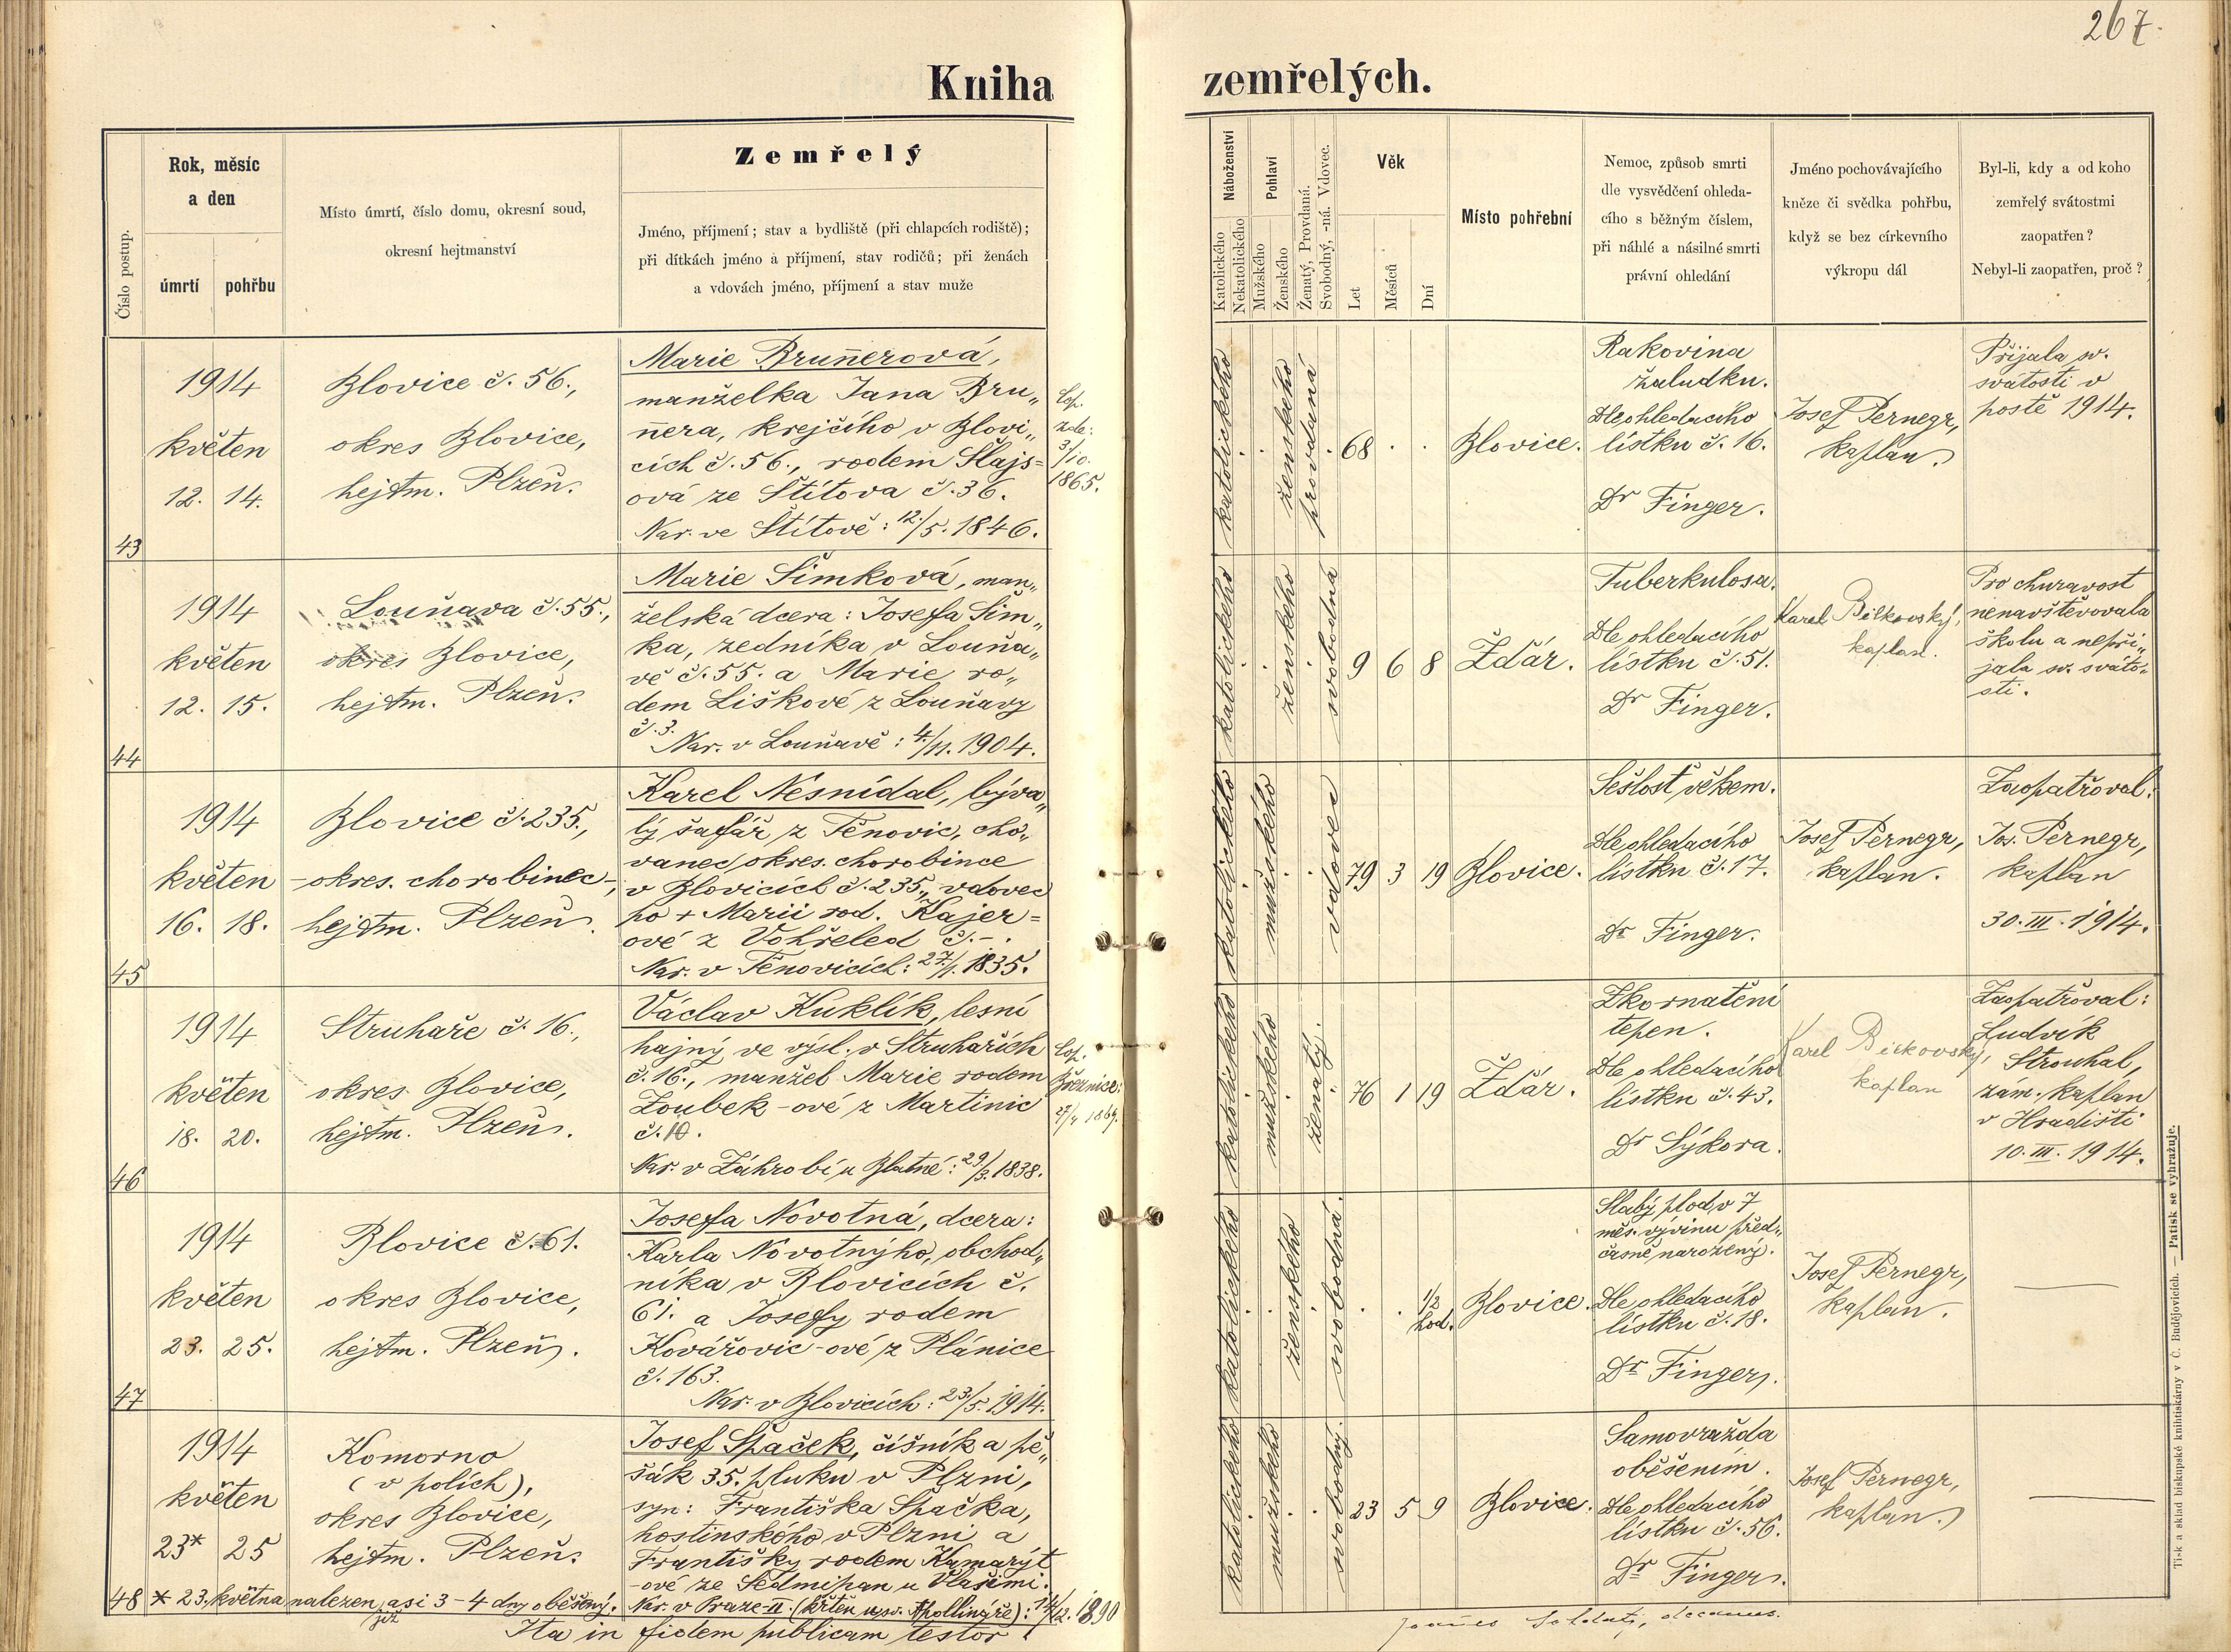 267.
Kniha zemřelých.
Číslo postup.
Rok, měsíc
a den
úmrtí
pohřbu
Místo úmrtí, číslo domu, okresní soud,
okresní hejtmanství
Zemřelý
Jméno, příjmení; stav a bydliště (při chlapcích rodiště);
při dítkách jméno a příjmení, stav rodičů; při ženách
a vdovách jméno, příjmení a stav muže
Náboženství
Katolického
Nekatolického
Pohlaví
Mužského
Ženského
Ženatý, Provdaná.
Svobodný, -ná. Vdovec.
Věk
Let
Měsíců
Dní
Místo pohřební
Nemoc, způsob smrti
dle vysvědčení ohleda-
cího s běžným číslem,
při náhlé a násilné smrti
právní ohledání
Jméno pochovávajícího
kněze či svědka pohřbu,
když se bez církevního
výkropu dál
Byl-li, kdy a od koho
zemřelý svátostmi
zaopatřen?
Nebyl-li zaopatřen, proč?
43
1914
květen
12. 14.
Blovice č. 56.,
okres Blovice,
hejtm. Plzeň.
Marie Brun̄erová,
manželka Jana Bru„
n̄era, krejčího v Blovi„
cích č. 56., rodem Šlajs=
ová ze Štítova č. 36.
Nar. ve Štítově: 12./5. 1846.
Cop.
zde:
3/10.
1865.
katolického
ženského
provdaná
68
Blovice.
Rakovina
žaludku.
Dle ohledacího
lístku č. 16.
Dr Finger.
Josef Pernegr,
kaplan.
Přijala sv.
svátosti v
postě 1914.
44
1914
květen
12. 15.
Louňava č. 55.,
okres Blovice,
hejtm. Plzeň.
Marie Šimková, man„
želská dcera: Josefa Šim„
ka, zedníka v Louňa„
vě č. 55. a Marie ro„
dem Liškové z Louňavy
č. 3.
Nar. v Louňavě: 4./11. 1904.
katolického
ženského
svobodná
9 6 8
Žďár.
Tuberkulosa.
Dle ohledacího
lístku č. 51.
Dr Finger.
Karel
kaplan.
Pro churavost
nenavštěvovala
školu a nepři„
jala sv. sváto„
sti.
45
1914
květen
16. 18.
Blovice č. 235.,
- okres. chorobinec -,
hejtm. Plzeň.
Karel Nesnídal, býva„
lý šafář z Těnovic, cho„
vanec okres. chorobince
v Blovicích č. 235., vdovec
po + Marii rod. Kajer=
ové z Vohřeled č. -.
Nar. v Těnovicích: 27./1. 1835.
katolického
mužského
vdovec
79 3 19
Blovice.
Sešlost věkem.
Dle ohledacího
lístku č. 17.
Dr Finger.
Josef Pernegr,
kaplan.
Zaopatřoval:
Jos. Pernegr,
kaplan
30. III. 1914.
46
1914
květen
18. 20.
Struhaře č. 16.,
okres Blovice,
hejtm. Plzeň.
Václav Kuklík, lesní
hajný ve výsl. v Struhařích
č. 16., manžel Marie rodem
Zoubek-ové z Martinic
č. 10.
Nar. v Záhrobí u Blatné: 29/3. 1838.
Cop.
Březnice:
katolického
mužského
ženatý.
76 1 19
Žďár.
Zkornatění
tepen.
Dle ohledacího
lístku č. 43.
Dr Sýkora.
Karel
kaplan
Zaopatřoval:
Ludvík
Strouhal,
zám. kaplan
v Hradišti
10. III. 1914.
47
1914
květen
23. 25.
Blovice č. 61.
okres Blovice,
hejtm. Plzeň.
Josefa Novotná, dcera:
Karla Novotnýho, obchod„
níka v Blovicích č.
61. a Josefy rodem
Kovářovic-ové z Plánice
č. 163.
Nar. v Blovicích: 23./5. 1914.
katolického
ženského
svobodná.
1/2
hod.
Blovice.
Slabý plod, v 7
měs. vývinu před„
časně narozený.
Dle ohledacího
lístku č. 18.
Dr Finger.
Josef Pernegr,
kaplan.
48
1914
květen
23* 25
Komorno
(v polích),
okres Blovice,
hejtm. Plzeň.
Josef Špaček, číšník a pě„
šák 35. pluku v Plzni,
syn: Františka Špačka,
hostinského v Plzni a
Františky rodem Kamarýt
-ové ze Sedmipan u Vlašimi.
Nar. v Praze-II. (křtěn u sv. Apollináře): 14/12. 1890
* 23. května nalezen, asi 3-4 dny oběšený.
již
katolického
mužského
svobodný.
23 5 9
Blovice.
Samovražda
oběšením.
Dle ohledacího
lístku č. 56.
Dr Finger.
Josef Pernegr,
kaplan.
Ita in fidem publicam testor:
decanus.
Tisk a sklad biskupské knihtiskárny v Č. Budějovicích. — Patisk se vyhražuje.